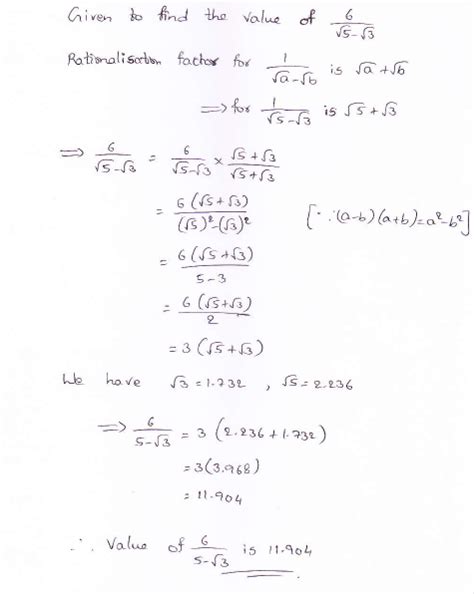 Given to find the value of 6/(√5-√3)
Rationalisation factor for 1/(√a-√b) is √a+√b
⟹ for 1/(√5-√3) is √5+√3
⟹ 6/(√5-√3) = 6/(√5-√3) × (√5+√3)/(√5+√3)
= 6(√5+√3)/((√5)²-(√3)²) [∵(a-b)(a+b)=a²-b²]
= 6(√5+√3)/(5-3)
= 6(√5+√3)/2
= 3(√5+√3)
We have √3=1.732, √5=2.236
⟹ 6/(5-√3) = 3(2.236+1.732)
= 3(3.968)
= 11.904
∴ Value of 6/(5-√3) is 11.904